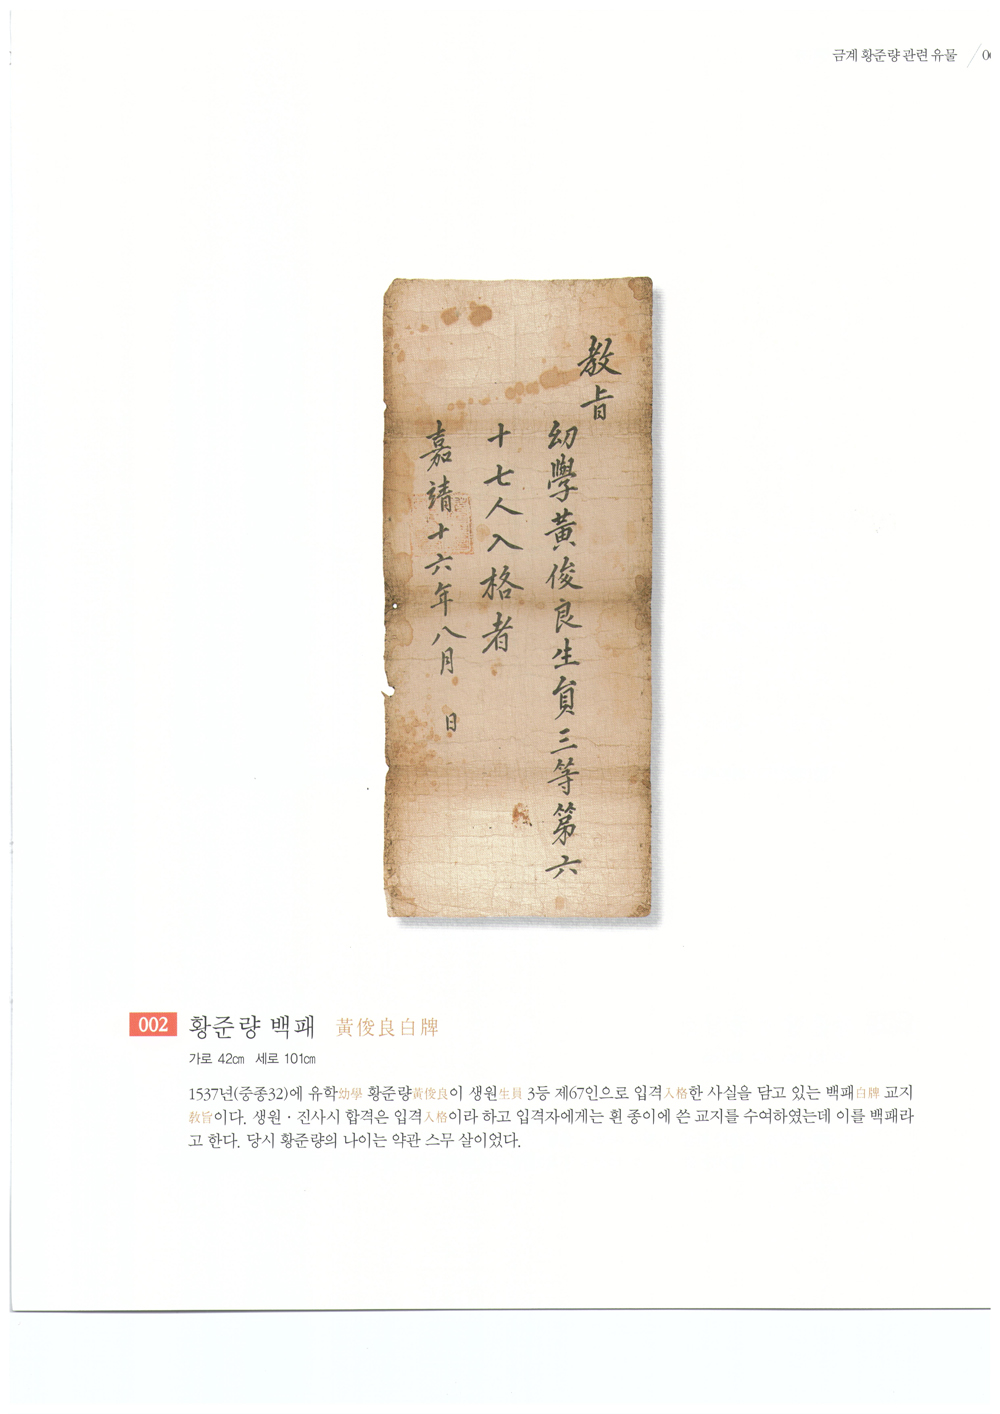 금계 황준량 관련 유물 / 0
教旨
幼學黃俊良生員三等第六
十七人入格者
嘉靖十六年八月 日
002 황준량 백패 黃俊良白牌
가로 42㎝ 세로 101㎝
1537년(중종32)에 유학幼學 황준량黃俊良이 생원生員 3등 제67인으로 입격入格한 사실을 담고 있는 백패白牌 교지
敎旨이다. 생원 · 진사시 합격은 입격入格이라 하고 입격자에게는 흰 종이에 쓴 교지를 수여하였는데 이를 백패라
고 한다. 당시 황준량의 나이는 약관 스무 살이었다.